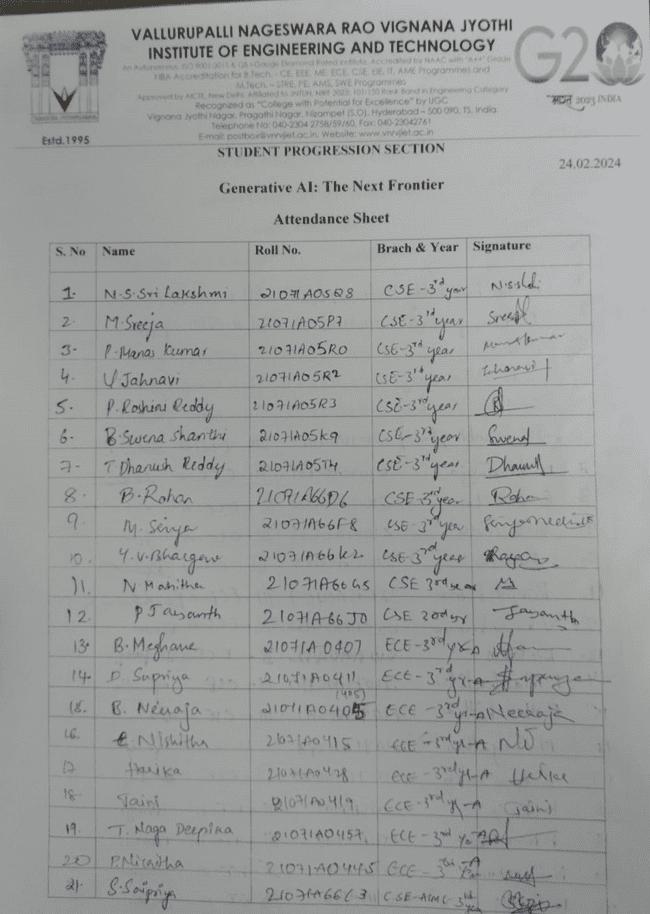 VALLURUPALLI NAGESWARA RAO VIGNANA JYOTHI
INSTITUTE OF ENGINEERING AND TECHNOLOGY
An Autonomous, ISO 9001:2015 & QS I-Gauge Diamond Rated Institute, Accredited by NAAC with 'A++' Grade
NBA Accreditation for B.Tech. - CE, EEE, ME, ECE, CSE, EIE, IT, AME Programmes and
M.Tech. – STRE, PE, AMS, SWE Programmes
Approved by AICTE, New Delhi, Affiliated to JNTUH, NIRF 2023: 101-150 Rank Band in Engineering Category
Recognized as "College with Potential for Excellence" by UGC
Vignana Jyothi Nagar, Pragathi Nagar, Nizampet (S.O), Hyderabad – 500 090, TS, India.
Telephone No: 040-2304 2758/59/60, Fax: 040-23042761
E-mail: postbox@vnrvjiet.ac.in; Website: www.vnrvjiet.ac.in
Estd.1995
G20
भारत 2023 INDIA
STUDENT PROGRESSION SECTION
24.02.2024
Generative AI: The Next Frontier
Attendance Sheet
S. No Name Roll No. Brach & Year Signature
1. N.S.Sri Lakshmi 21071A05Q8 CSE-3rd year
2. M.Sreeja 21071A05P7 CSE-3rd year
3. P.Manas Kumar 21071A05R0 CSE-3rd year
4. V Jahnavi 21071A05R2 CSE-3rd year
5. P. Roshini Reddy 21071A05R3 CSE-3rd year
6. B.Swena Shanthi 21071A05K9 CSE-3rd year
7. T Dhanush Reddy 21071A05T4 CSE-3rd year
8. B.Rohan 21071A66D6 CSE-3rd year
9. M. 21071A66F8 CSE-3rd year
10. Y.V.Bhargav 21071A66K2 CSE-3rd year
11. N Mahitha 21071A66G5 CSE 3rd year
12. P Jaysanth 21071A66J0 CSE 3rd yr Jaysanth
13. B.Meghana 21071A0407 ECE-3rd yr-A
14. D. Supriya 21071A0411 ECE-3rd yr-A
15. B. Neeraja 21071A0405 (405) ECE-3rd yr-A Neeraja
16. Nishitha 21071A0415 ECE-3rd yr-A
17 Harika 21071A0428 ECE-3rd yr-A
18. Jaini 21071A0419 ECE-3rd yr-A Jaini
19. T. Naga Deepika 21071A0457 ECE-3rd yr
20 P.Nivitha 21071A0445 ECE-3rd
21. S.Saipriya 21071A66C3 CSE-AIML-3rd year